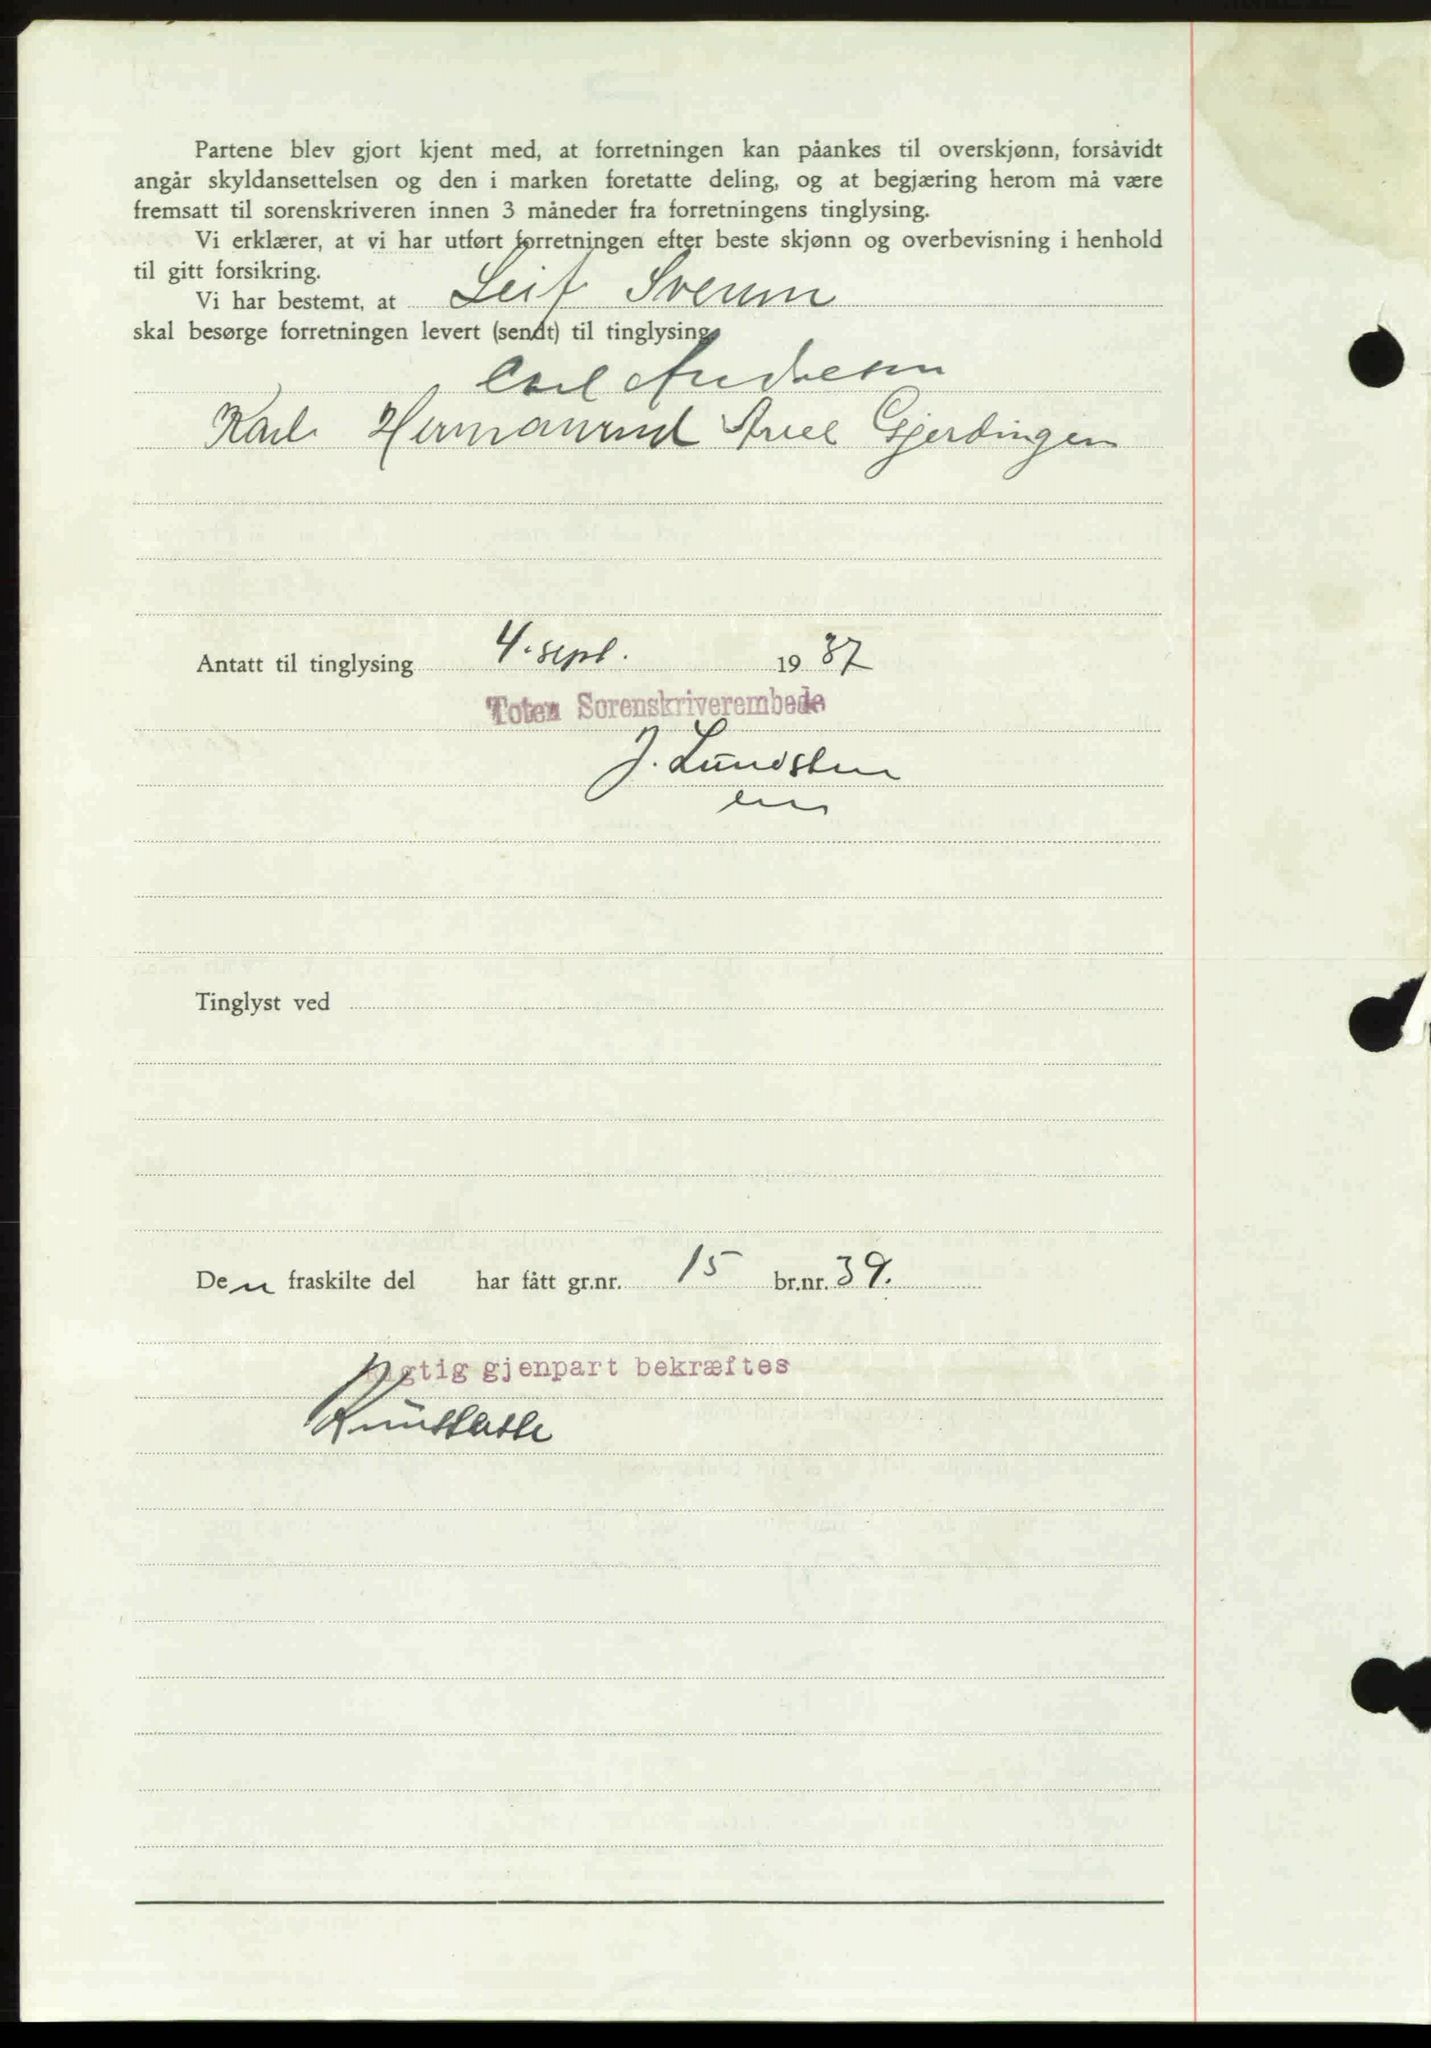 Partene blev gjort kjent med, at forretningen kan påankes til overskjønn, forsåvidt
angår skyldansettelsen og den i marken foretatte deling, og at begjæring herom må være
fremsatt til sorenskriveren innen 3 måneder fra forretningens tinglysing.
Vi erklærer, at vi har utført forretningen efter beste skjønn og overbevisning i henhold
til gitt forsikring.
Vi har bestemt, at Leif Sveum
skal besørge forretningen levert (sendt) til tinglysing
Carl Andresen
Karl Hermanrud Axel Gjerdingen
Antatt til tinglysing 4. sept. 1937
Toten Sorenskriverembede
J. Lundsten
Tinglyst ved
Den fraskilte del har fått gr.nr. 15 br.nr. 39.
Rigtig gjenpart bekræftes